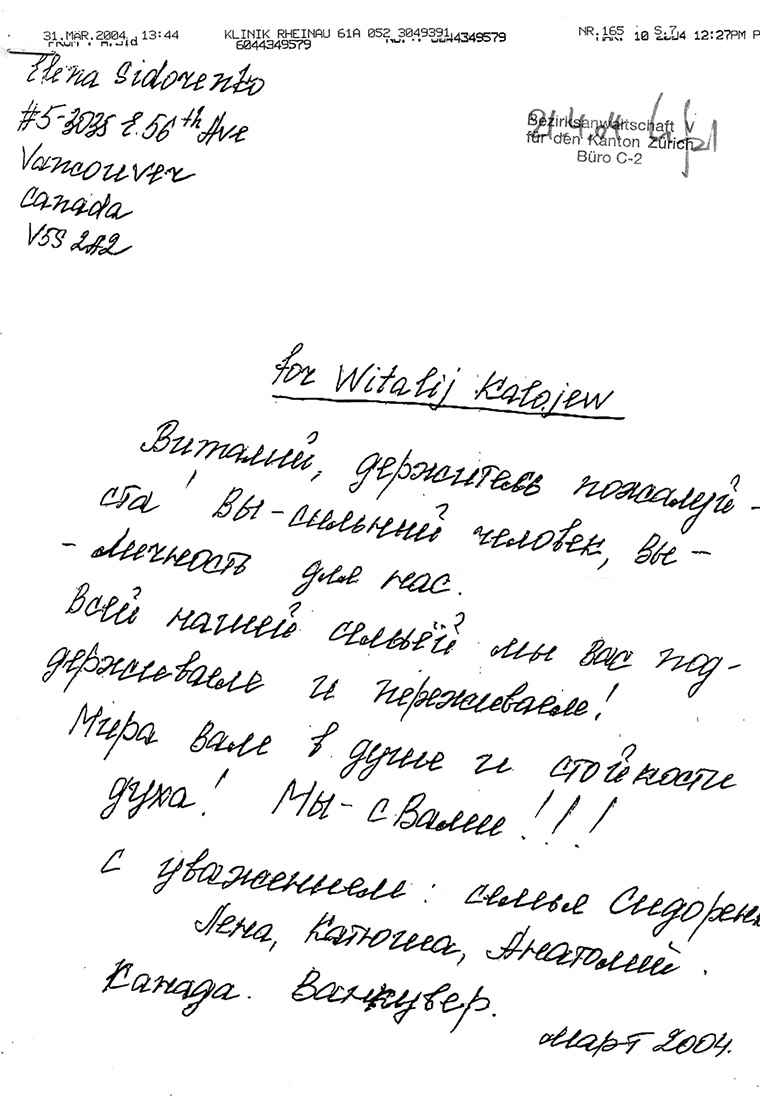 31.MAR.2004 13:44 KLINIK RHEINAU 61A 052 3049391 NR.165 S.7
6044349579 6044349579 10 2004 12:27PM P
Elena Sidorenko
#5-3035 E.56th Ave
Vancouver
Canada
V5S 2A2
21.4.04
Bezirksanwaltschaft V
für den Kanton Zürich
Büro C-2
for Witalij Kalojew
Виталий, держитесь пожалуй-
ста! Вы-сильный человек, вы-
-личность для нас.
Всей нашей семьёй мы вас под-
держиваем и переживаем!
Мира вам в душе и стойкости
духа! Мы-с Вами!!!
С уважением: семья Сидорен
Лена, Катюша, Анатолий.
Канада. Ванкувер.
Март 2004.